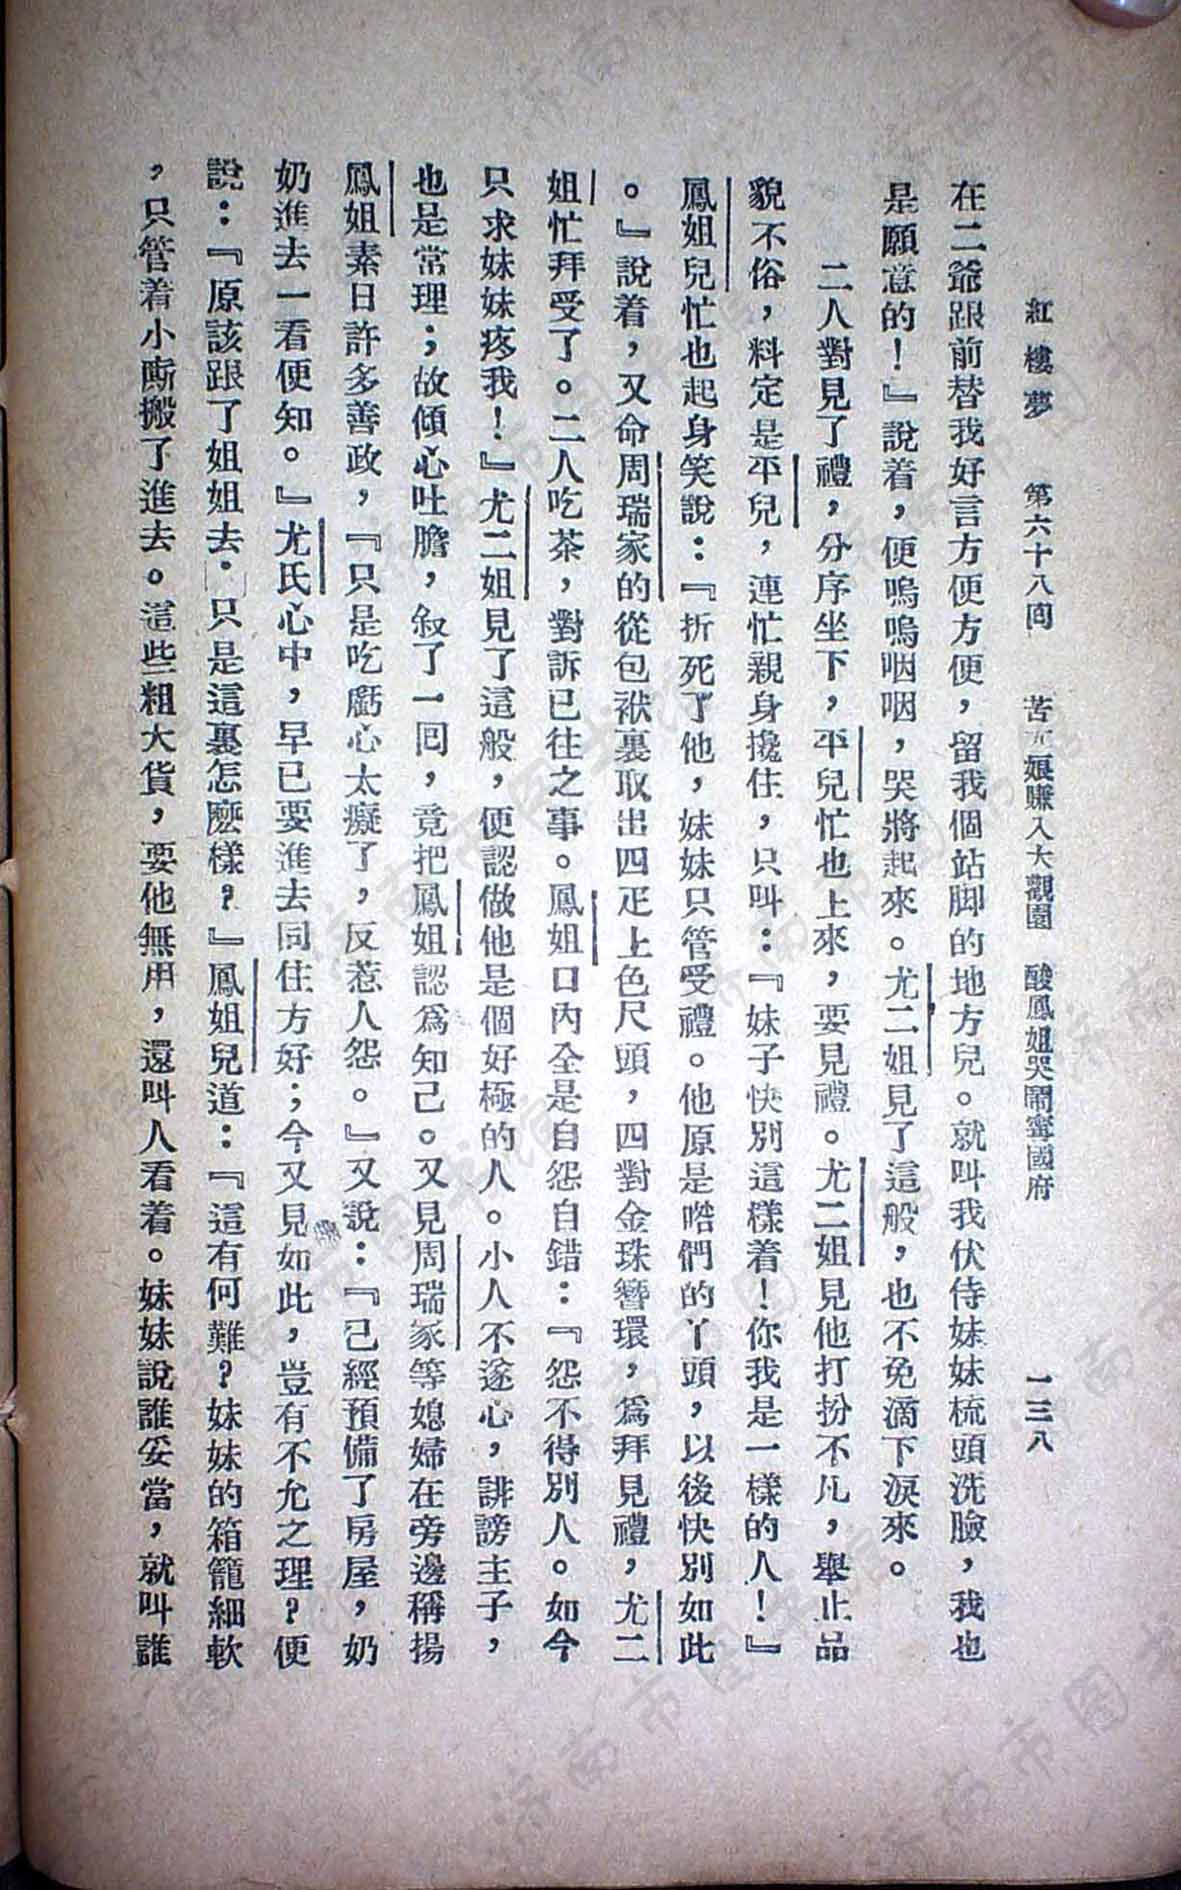 紅樓夢 第六十八囘 苦尤娘賺入大觀園 酸鳳姐哭鬧甯國府 一三八
在二爺跟前替我好言方便方便，留我個站脚的地方兒。就叫我伏侍妹妹梳頭洗臉，我也
是願意的！』說着，便嗚嗚咽咽，哭將起來。尤二姐見了這般，也不免滴下淚來。
二人對見了禮，分序坐下，平兒忙也上來，要見禮。尤二姐見他打扮不凡，舉止品
貌不俗，料定是平兒，連忙親身攙住，只叫：『妹子快別這樣着！你我是一樣的人！』
鳳姐兒忙也起身笑說：『折死了他，妹妹只管受禮。他原是喒們的丫頭，以後快別如此
。』說着，又命周瑞家的從包袱裏取出四疋上色尺頭，四對金珠簪環，爲拜見禮，尤二
姐忙拜受了。二人吃茶，對訴已往之事。鳳姐口內全是自怨自錯：『怨不得別人。如今
只求妹妹疼我！』尤二姐見了這般，便認做他是個好極的人。小人不遂心，誹謗主子，
也是常理；故傾心吐膽，敍了一囘，竟把鳳姐認爲知己。又見周瑞家等媳婦在旁邊稱揚
鳳姐素日許多善政，『只是吃虧心太癡了，反惹人怨。』又說：『已經預備了房屋，奶
奶進去一看便知。』尤氏心中，早已要進去同住方好；今又見如此，豈有不允之理？便
說：『原該跟了姐姐去，只是這裏怎麼樣？』鳳姐兒道：『這有何難？妹妹的箱籠細軟
，只管着小廝搬了進去。這些粗大貨，要他無用，還叫人看着。妹妹說誰妥當，就叫誰
济南市图书馆